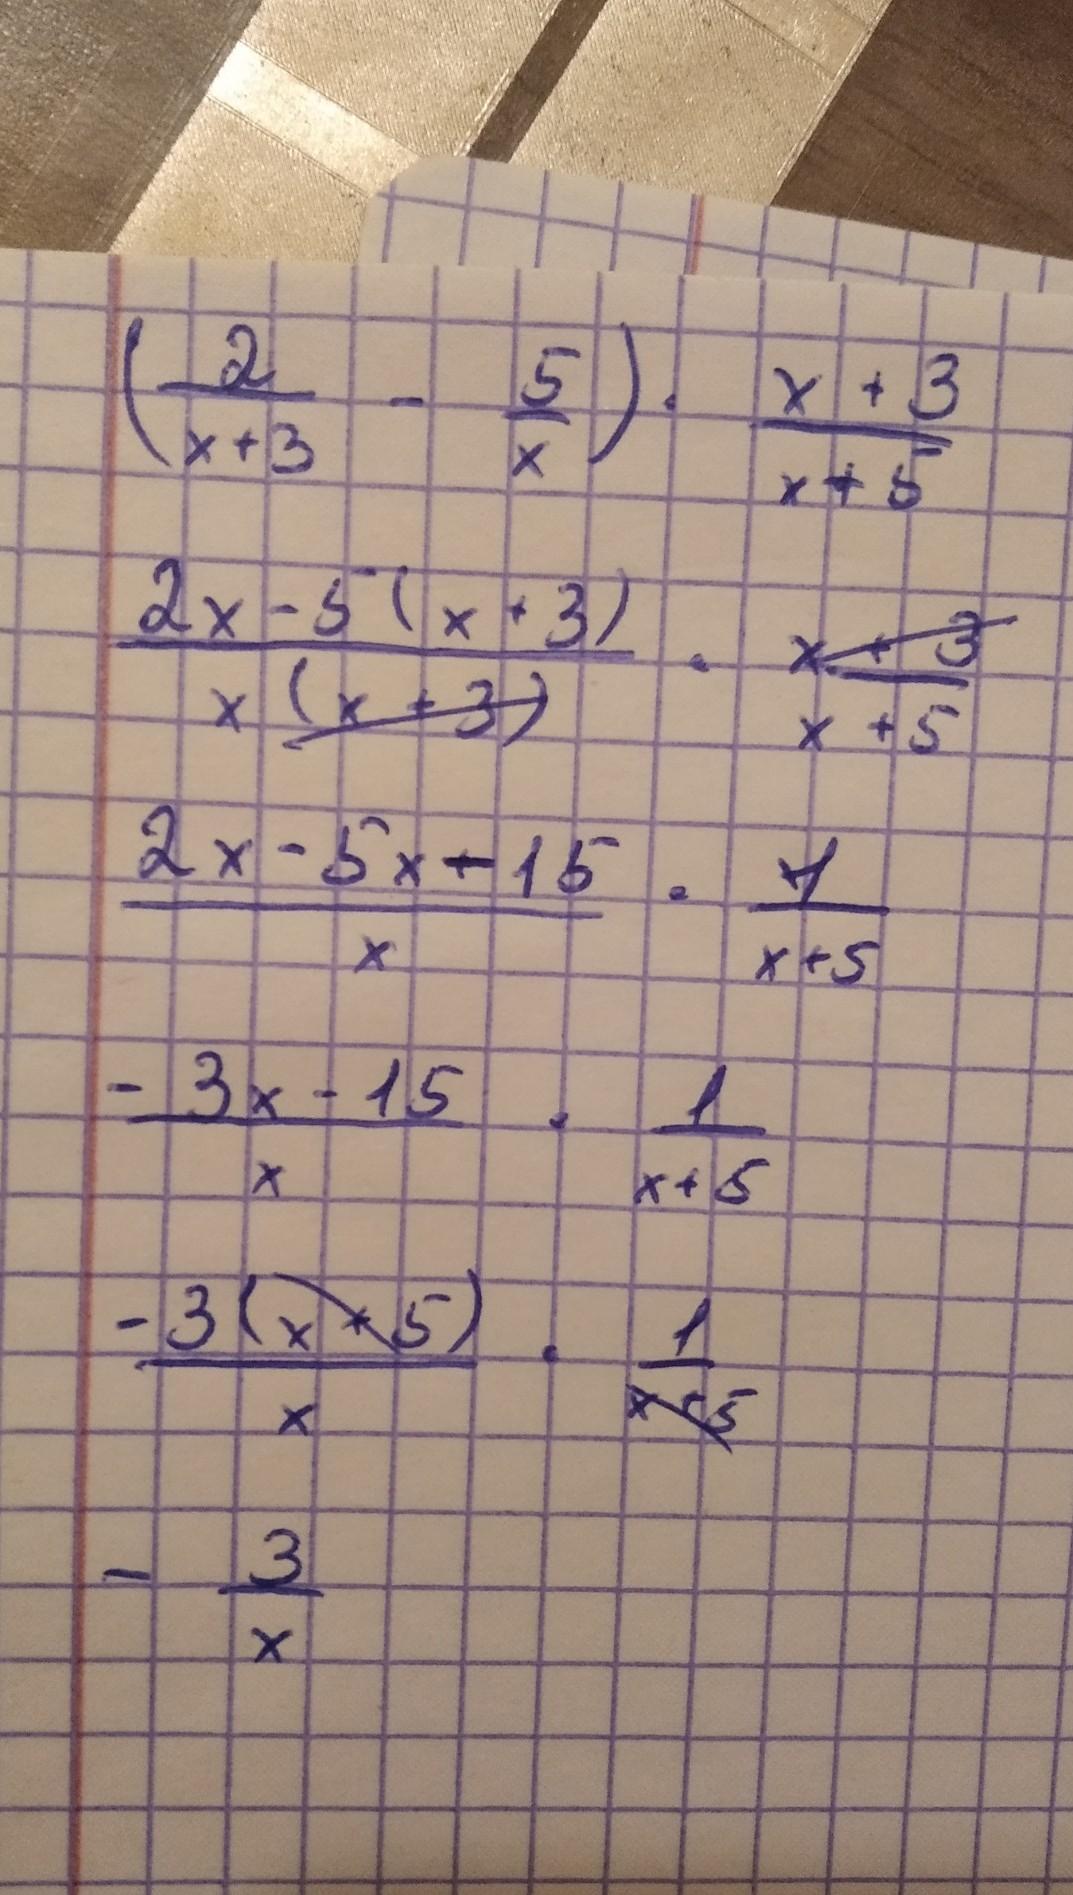 (2/(x+3) - 5/x) · (x+3)/(x+5)
(2x-5(x+3))/(x(x+3)) · (x+3)/(x+5)
(2x-5x+15)/x · 1/(x+5)
(-3x-15)/x · 1/(x+5)
(-3(x+5))/x · 1/(x+5)
- 3/x